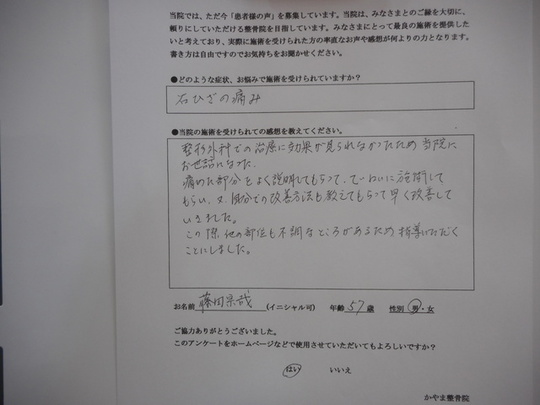 当院では、ただ今「患者様の声」を募集しています。当院は、みなさまとのご縁を大切に、
頼りにしていただける整骨院を目指しています。みなさまにとって最良の施術を提供した
いと考えており、実際に施術を受けられた方の率直なお声や感想が何よりの力となります。
書き方は自由ですのでお気持ちをお聞かせください。
●どのような症状、お悩みで施術を受けられていますか？
右ひざの痛み
●当院の施術を受けられての感想を教えてください。
整形外科での治療に効果が見られなかったため当院に
お世話になった。
痛めた部分をよく説明してもらって、ていねいに施術して
もらい、又、自分での改善方法も教えてもらって早く改善して
いきました。
この際、他の部位も不調なところがあるため指導いただく
ことにしました。
お名前 藤田 (イニシャル可) 年齢 57 歳 性別 男・女
ご協力ありがとうございました。
このアンケートをホームページなどで使用させていただいてもよろしいですか？
はい いいえ
かやま整骨院